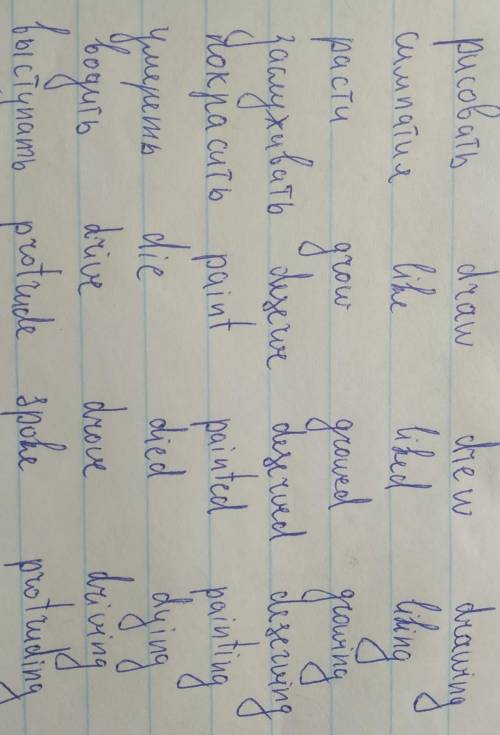 рисовать draw drew drawing
симпатия like liked liking
расти grow growed growing
заслуживать dezerve dezerved dezerving
покрасить paint painted painting
умереть die died dying
водить drive drove driving
выступать protrude spoke protruding